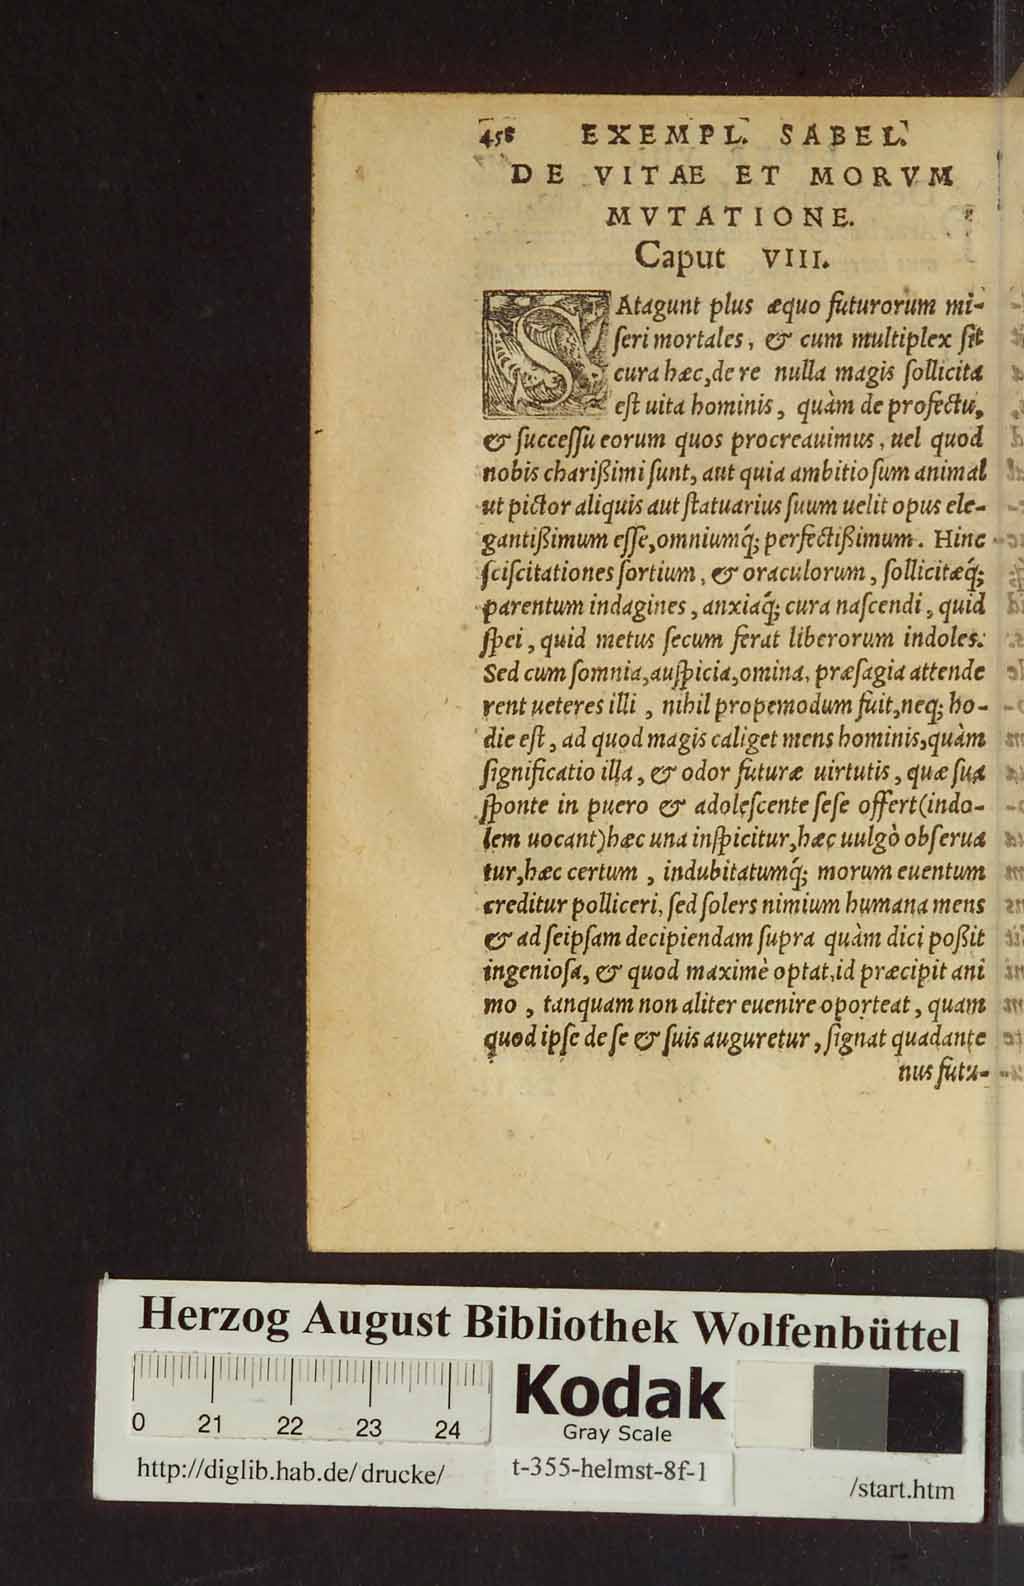 458 EXEMPL. SABEL.
DE VITAE ET MORVM
MVTATIONE.
Caput VIII.
SAtagunt plus æquo futurorum mi-
ſeri mortales, & cum multiplex ſit
cura hæc, de re nulla magis ſollicita
eſt uita hominis, quàm de profectu,
& ſucceſſu eorum quos procreauimus, uel quod
nobis charißimi ſunt, aut quia ambitioſum animal
ut pictor aliquis aut ſtatuarius ſuum uelit opus ele-
gantißimum eſſe, omniumq́; perfectißimum. Hinc
ſciſcitationes ſortium, & oraculorum, ſollicitæq́;
parentum indagines, anxiaq́; cura naſcendi, quid
ſpei, quid metus ſecum ferat liberorum indoles.
Sed cum ſomnia, auſpicia, omina, præſagia attende
rent ueteres illi, nihil propemodum fuit, neq; ho-
die eſt, ad quod magis caliget mens hominis, quàm
ſignificatio illa, & odor futuræ uirtutis, quæ ſua
ſponte in puero & adoleſcente ſeſe offert (indo-
lem uocant) hæc una inſpicitur, hæc uulgò obſerua
tur, hæc certum, indubitatumq́; morum euentum
creditur polliceri, ſed ſolers nimium humana mens
& ad ſeipſam decipiendam ſupra quàm dici poßit
ingenioſa, & quod maximè optat, id præcipit ani
mo, tanquam non aliter euenire oporteat, quam
quod ipſe de ſe & ſuis auguretur, ſignat quadante
nus futu-
Herzog August Bibliothek Wolfenbüttel
0 21 22 23 24
Kodak
Gray Scale
http://diglib.hab.de/drucke/ t-355-helmst-8f-1 /start.htm